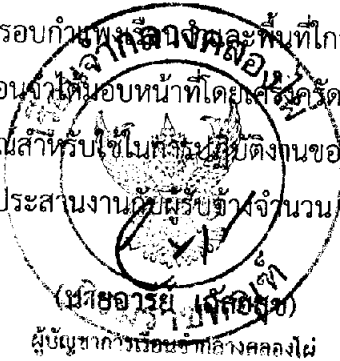 รอบกำแพงเรือนจำและพื้นที่ใก
อนจำได้มอบหน้าที่โดยเคร่งครัด
ณ์สำหรับใช้ในการปฏิบัติงานขอ
ประสานงานกับผู้รับจ้างจำนวน
(นายอารีย์
ผู้บัญชาการเรือนจำกลางคลองไผ่